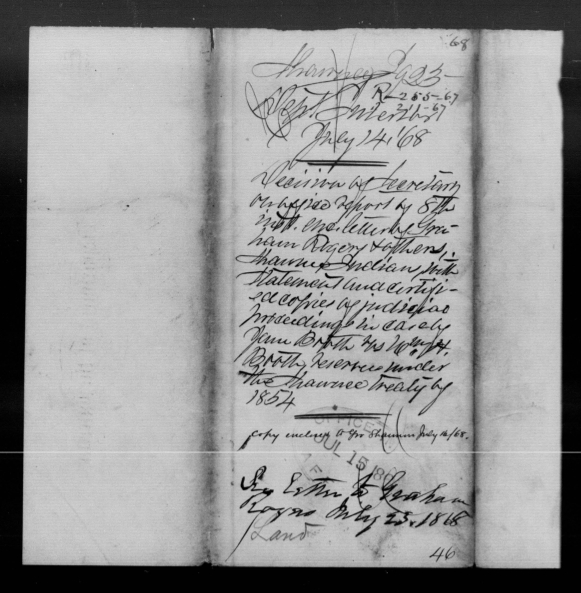 68
Shawnee I 923
R-255-67
Dept Interior
July 14, '68
Decision by Secretary
on office report of 8th
inst. enc letter of Gra-
ham Rogers & others,
Shawnee Indians, with
statement and certifi-
ed copies of judicial
proceedings in case of
Booth vs Wm H.
Booth, reserve under
the Shawnee treaty of
1854
copy enclosed to Shawnee July 16/68.
OFFICE
JUL 15
See letter to Graham
Rogers July 25, 1868
Land
46